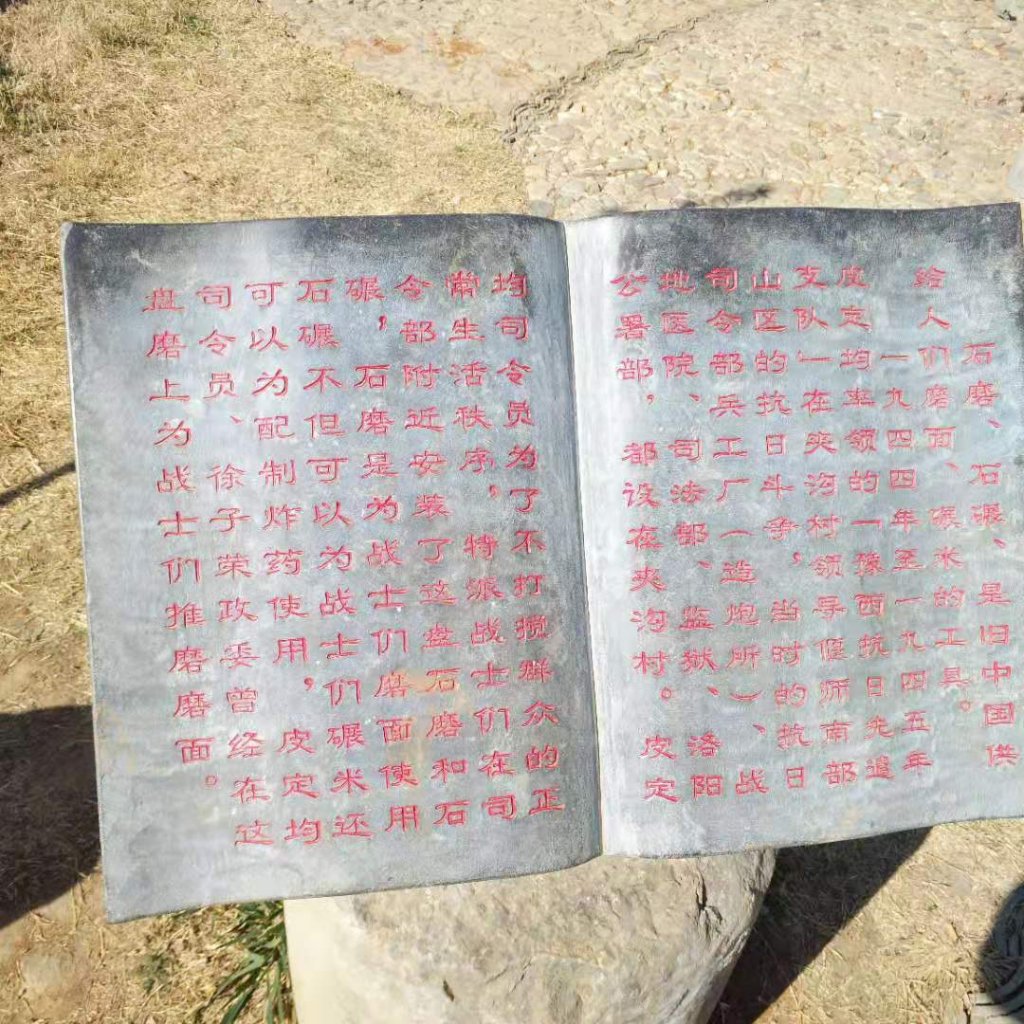 石磨、石碾、是旧中国供
给人们磨面、碾米的工具。
一九四四年至一九四五年
皮定均率领的「豫西抗日先遣
支队」在夹沟村领导偃师南部
山区的抗日斗争，当时的抗日
司令部兵工厂（造炮所）、战
地医院、司法部、监狱、洛阳
公署部，都设在夹沟村。皮定
均司令员为了不打搅群众的正
常生活秩序，特派战士们在司
令部附近安装了这盘石磨和石
碾，石磨是为战士们磨面使用
石碾不但可以为战士们碾米还
可以为配制炸药使用，皮定均
司令员、徐子荣政委曾经在这
盘磨上为战士们推磨磨面。